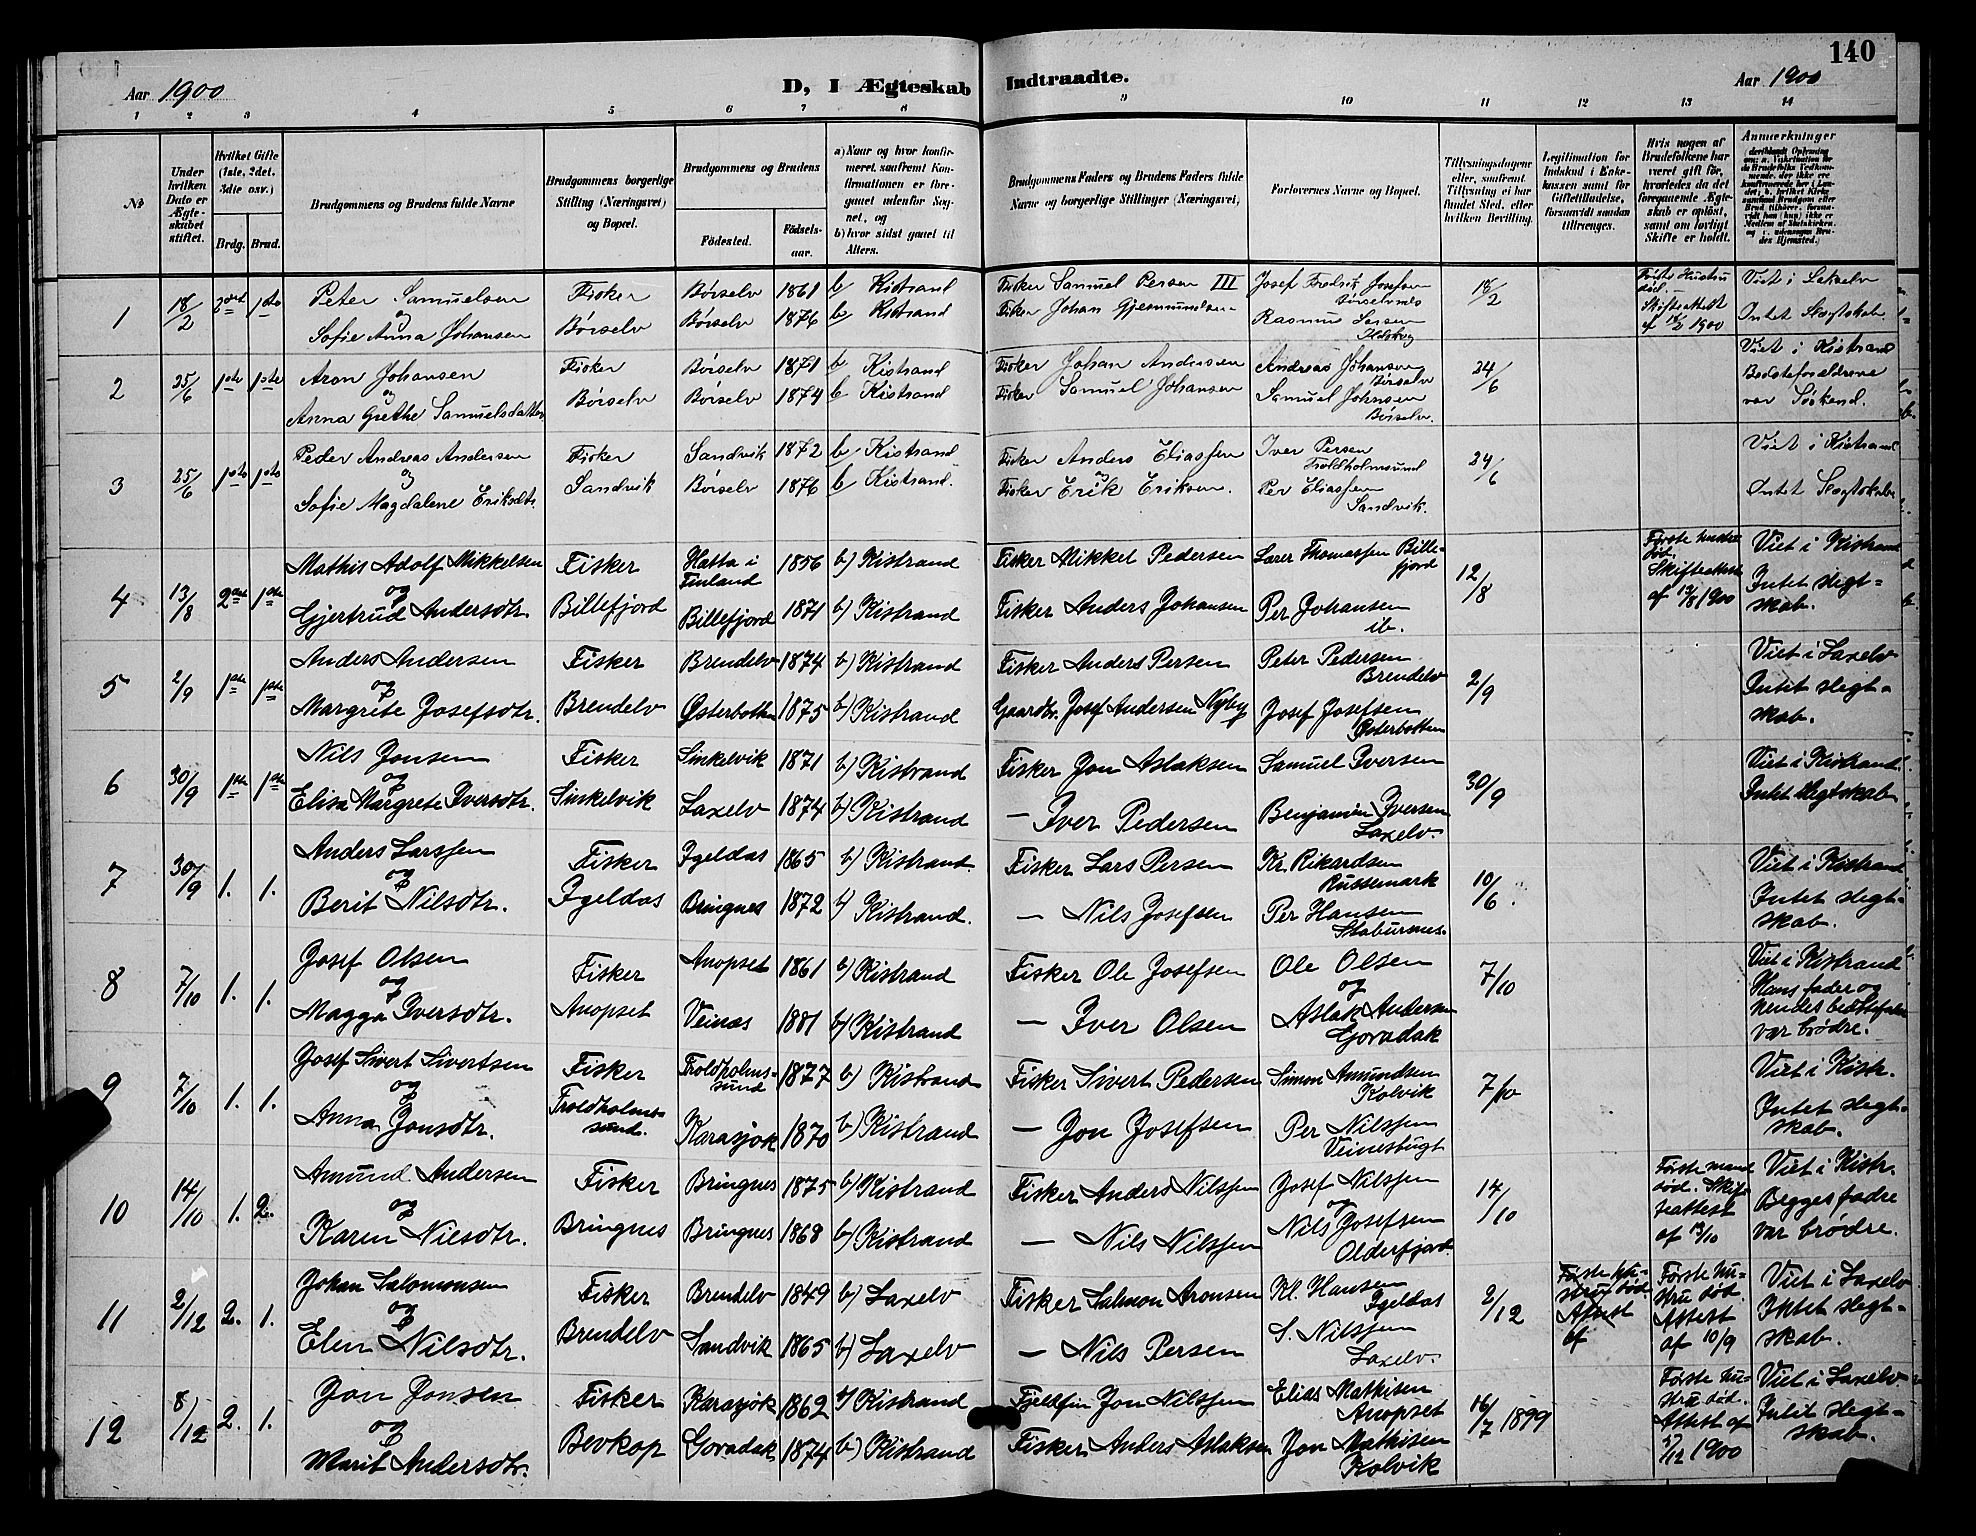 140
Aar 1900
D, I Ægteskab Indtraadte.
Aar 1900
1 2 3 4 5 6 7 8 9 10 11 12 13 14
№
Under hvilken Dato er Ægteskabet stiftet.
Hvilket Gifte (1ste, 2det, 3die osv.)
Brdg. Brud.
Brudgommens og Brudens fulde Navne
Brudgommens borgerlige Stilling (Næringsvei) og Bopæl.
Brudgommens og Brudens
Fødested. Fødselsaar.
a) Naar og hvor konfirmeret, saafremt Konfirmationen er foregaaet udenfor Sognet, og
b) hvor sidst gaaet til Alters.
Brudgommens Faders og Brudens Faders fulde Navne og borgerlige Stillinger (Næringsvei)
Forlovernes Navne og Bopæl.
Tillysningsdagene eller, saafremt Tillysning ei har fundet Sted, efter hvilken Bevilling.
Legitimation for Indskud i Enkekassen samt for Giftetilladelse, forsaavidt saadan tiltrænges.
Hvis nogen af Brudefolkene har været gift før, hvorledes da det foregaaende Ægteskab er opløst, samt om lovligt Skifte er holdt.
Anmærkninger
1 18/2 2det 1ste Peter Samuelsen Fisker Børselv 1861 b Kistrand Fisker Samuel Persen III Josef Fredrik Josefsen Børselvnes 18/2 Første Hustru død. Viet i Lakselv
og
Sofie Anna Johansen Børselv Børselv 1876 b Kistrand Fisker Johan Gjermundsen Rasmus Larsen Skifteattest af 18/2 1900 Intet Slægtskab.
2 25/6 1ste 1ste Aron Johansen Fisker Børselv 1871 b Kistrand Fisker Johan Andersen Andreas Johansen Børselv 24/6 Viet i Kistrand
og
Anna Grethe Samuelsdatter Børselv Børselv 1874 b Kistrand Fisker Samuel Johansen Samuel Johnsen Børselv. Bedsteforældrene var Søskend.
3 25/6 1ste 1ste Peder Andreas Andersen Fisker Sandvik 1872 b Kistrand Fisker Anders Eliassen Iver Persen Troldholmsund 24/6 Viet i Kistrand
og
Sofie Magdalene Eriksdtr. Sandvik Børselv 1876 b Kistrand. Fisker Erik Eriksen. Per Eliassen Sandvik. Intet Slægtskab
4 13/8 2det 1ste Mathis Adolf Mikkelsen Fisker Hatta i Finland 1856 b) Kistrand Fisker Mikkel Pedersen Larer Thomassen Billefjord 12/8 Første hustru død. Viet i Kistrand
og
Gjertrud Andersdtr. Billefjord Billefjord 1871 b) Kistrand Fisker Anders Johansen Per Johansen ib. Skifteattest af 12/8 1900 Intet slegtskab.
5 2/9 1ste 1ste Anders Andersen Fisker Brendelv 1874 b) Kistrand Fisker Anders Persen Peter Pedersen Brendelv 2/9 Viet i Laxelv
og
Margrete Josefsdtr. Brendelv Østerbotten 1875 b) Kistrand Gaardbr. Josef Andersen Nyby Josef Josefsen Østerbotten Intet slegtskab.
6 30/9 1ste 1ste Nils Jonsen Fisker Sinkelvik 1871 b) Kistrand Fisker Jon Aslaksen Samuel Iversen 30/9 Viet i Kistrand.
og
Elisa Margrete Iversdtr. Sinkelvik Laxelv 1874 b) Kistrand — Iver Pedersen Benjamin Iversen Laxelv. Intet slegtskab
7 30/9 1. 1. Anders Larssen Fisker Igeldas 1865 b) Kistrand. Fisker Lars Persen Kr. Rikardsen Russemark 10/6. Viet i Kistrand
og
Berit Nilsdtr. Igeldas Bringnes 1872 b) Kistrand. — Nils Josefsen Per Hansen Stabursnes. Intet slegtskab.
8 7/10 1. 1. Josef Olsen Fisker Anopset 1861 b) Kistrand Fisker Ole Josefsen Ole Olsen 7/10 Viet i Kistrand
og og
Magga Iversdtr. Anopset Veinæs 1881 b) Kistrand — Iver Olsen Aslak Andersen Goradak Hans fader og hendes bedstefader var brødre.
9 7/10 1. 1. Josef Sivert Sivertsen Fisker Troldholmssund 1877 b) Kistrand Fisker Sivert Pedersen Simon Amundsen Kolvik 7/10 Viet i Kistr.
og
Anna Jonsdtr. Troldholmssund. Karasjok 1870 b) Kistrand — Jon Josefsen Per Nilssen Veinesbugt Intet slegtskab.
10 14/10 1. 2. Amund Andersen Fisker Bringnes 1875 b) Kistrand Fisker Anders Nilssen Josef Nilssen 14/10 Første mand død. Viet i Kistr.
og og
Karen Nilsdtr. Bringnes Bringnes 1868 b) Kistrand — Nils Nilssen Nils Josefsen Olderfjord. Skifteattest af 13/10 Begges fadre var brødre.
11 2/12 2. 1. Johan Salomonsen Fisker Brendelv 1849 b) Laxelv Fisker Salmon Aronsen Kl. Hansen Igeldas 2/12 Første hustru død Attest af Første hustru død. Viet i Laxelv
og
Elen Nilsdtr. Brendelv Sandvik 1865 b) Laxelv — Nils Persen S. Nilssen Laxelv. Attest af 10/9 Intet slegtskab.
12 8/12 2. 1. Jon Jonsen Fisker Karasjok 1862 b) Kistrand Fjeldfin Jon Nilssen Elias Mathisen Anopset 16/7 1899 Første hustru død. Viet i Laxelv
og
Marit Andersdtr. Bevkop Goradak 1874 b) Kistrand Fisker Anders Aslaksen Jon Mathisen Kolvik Attest af 5/12 1900 Intet slegtskab.